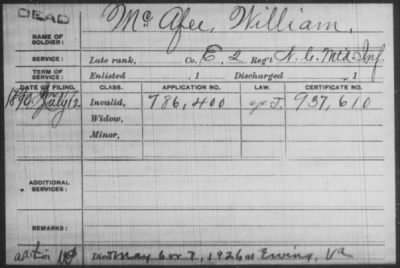 DEAD
NAME OF SOLDIER: McAfee, William.
SERVICE: Late rank, Co. E. 2 Reg't N. C. Mtd. Inf
TERM OF SERVICE: Enlisted , 1 Discharged , 1
DATE OF FILING. CLASS. APPLICATION NO. LAW. CERTIFICATE NO.
1890. July 12. Invalid, 786,400 J. 937,610
Widow,
Minor,
ADDITIONAL SERVICES:
REMARKS:
Died May 6 or 7, 1926 at Ewing, Va